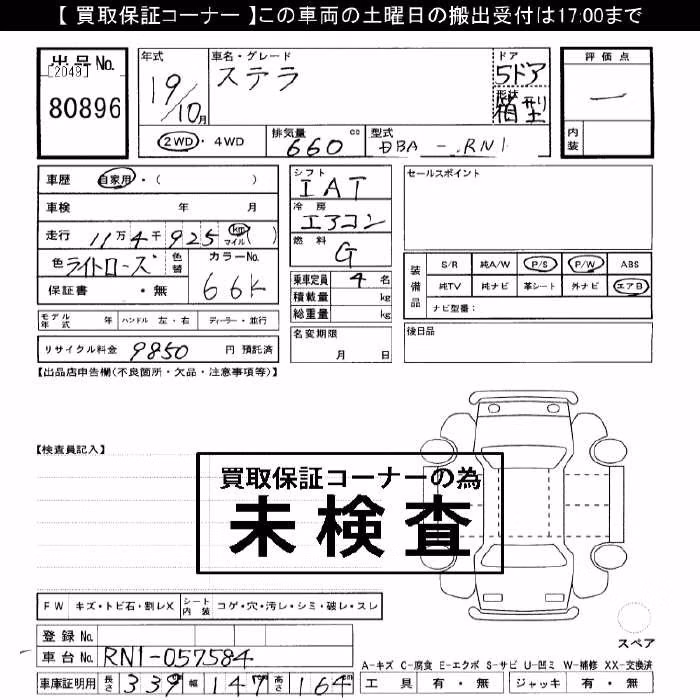 【 買取保証コーナー 】この車両の土曜日の搬出受付は17:00まで
出品No.
[2049]
80896
年式
19/10月
車名・グレード
ステラ
ドア
5ドア
形状
箱型
評価点
一
内装
2WD・4WD
排気量
660 cc
型式
DBA-RN1
車歴 自家用・( )
車検 年 月
走行 11万4千925 km マイル( )
色 ライトローズ 色替
カラーNo.
66K
保証書 ・無
シフト
IAT
冷房
エアコン
燃料
G
乗車定員 4 名
積載量 kg
総重量 kg
名変期限
月 日
セールスポイント
装備品
S/R 純A/W P/S P/W ABS
純TV 純ナビ 革シート 外ナビ エアB
ナビ型番：
後日品
モデル年式 年 ハンドル 左・右 ディーラー・並行
リサイクル料金 9850 円 預託済
【出品店申告欄(不良箇所・欠品・注意事項等)】
【検査員記入】
買取保証コーナーの為
未検査
FW キズ・トビ石・割レX シート内装 コゲ・穴・汚レ・シミ・破レ・スレ
登録No.
車台No. RN1-057584
車庫証明用 長さ 339 幅 147 高さ 164 cm
スペア
A-キズ C-腐食 E-エクボ S-サビ U-凹ミ W-補修 XX-交換済
工具 有・無 ジャッキ 有・無